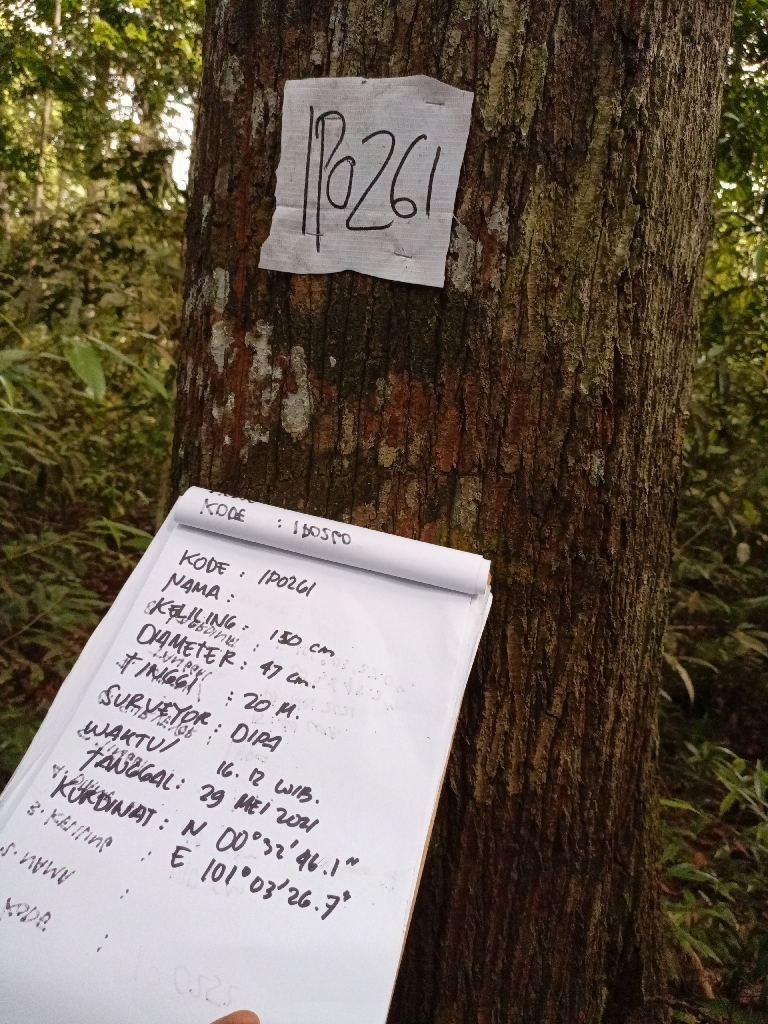 IP0261
KODE : IP0260
KODE : IP0261
NAMA :
KELILING : 150 cm
DIAMETER : 47 cm.
TINGGI : 20 M.
SURVEYOR : DIRA
WAKTU/ 16.12 WIB.
TANGGAL : 29 MEI 2021
KORDINAT : N 00°32'46.1"
E 101°03'26.7"